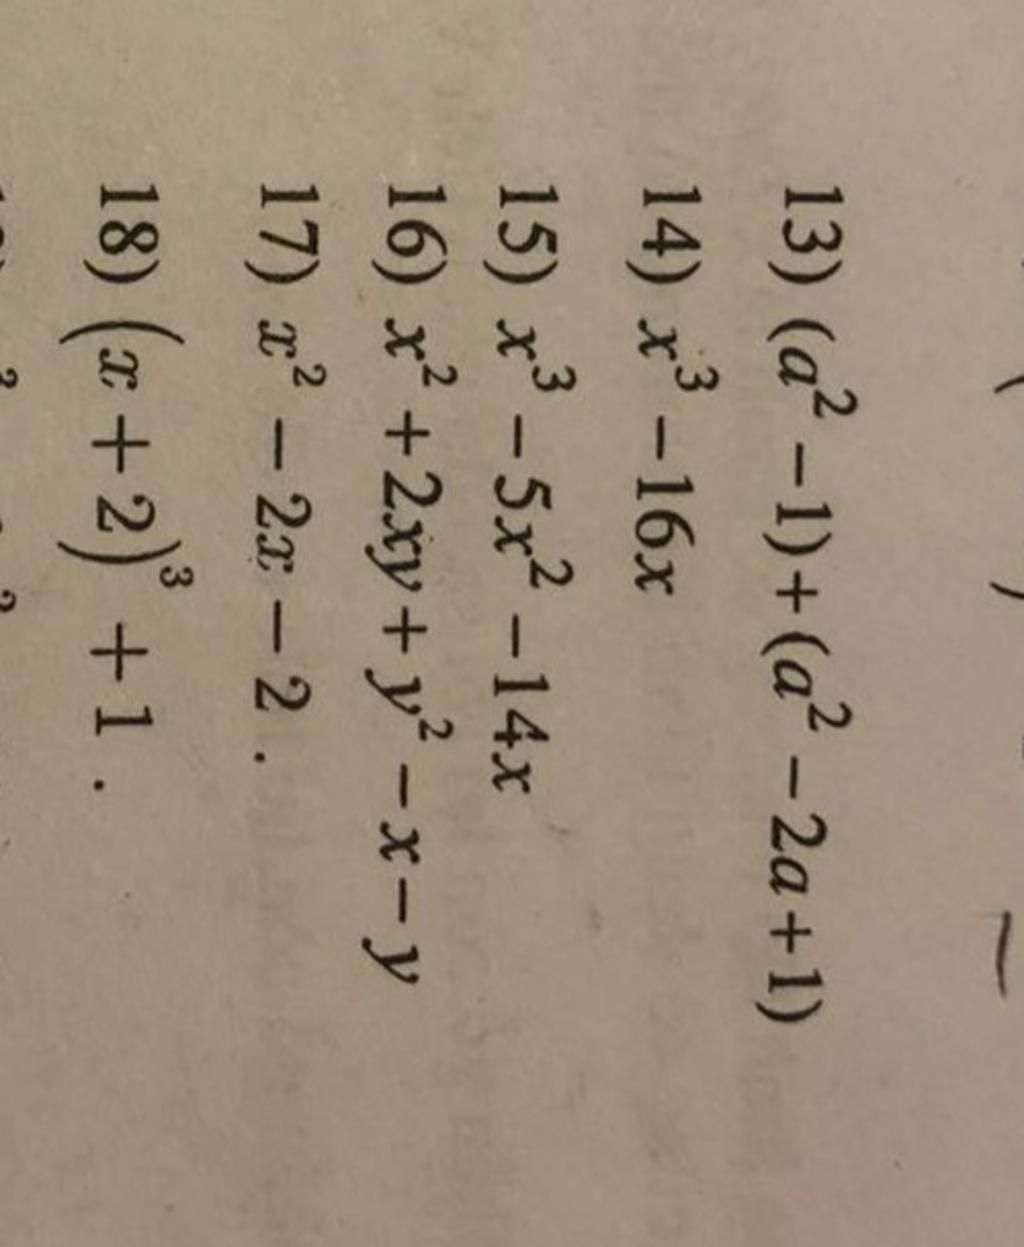 13) (a² −1)+(a² −2a+1)
14) x³ −16x
15) x³ −5x² −14x
16) x² +2xy+y² −x−y
17) x² − 2x − 2 .
18) (x + 2)³ + 1 .